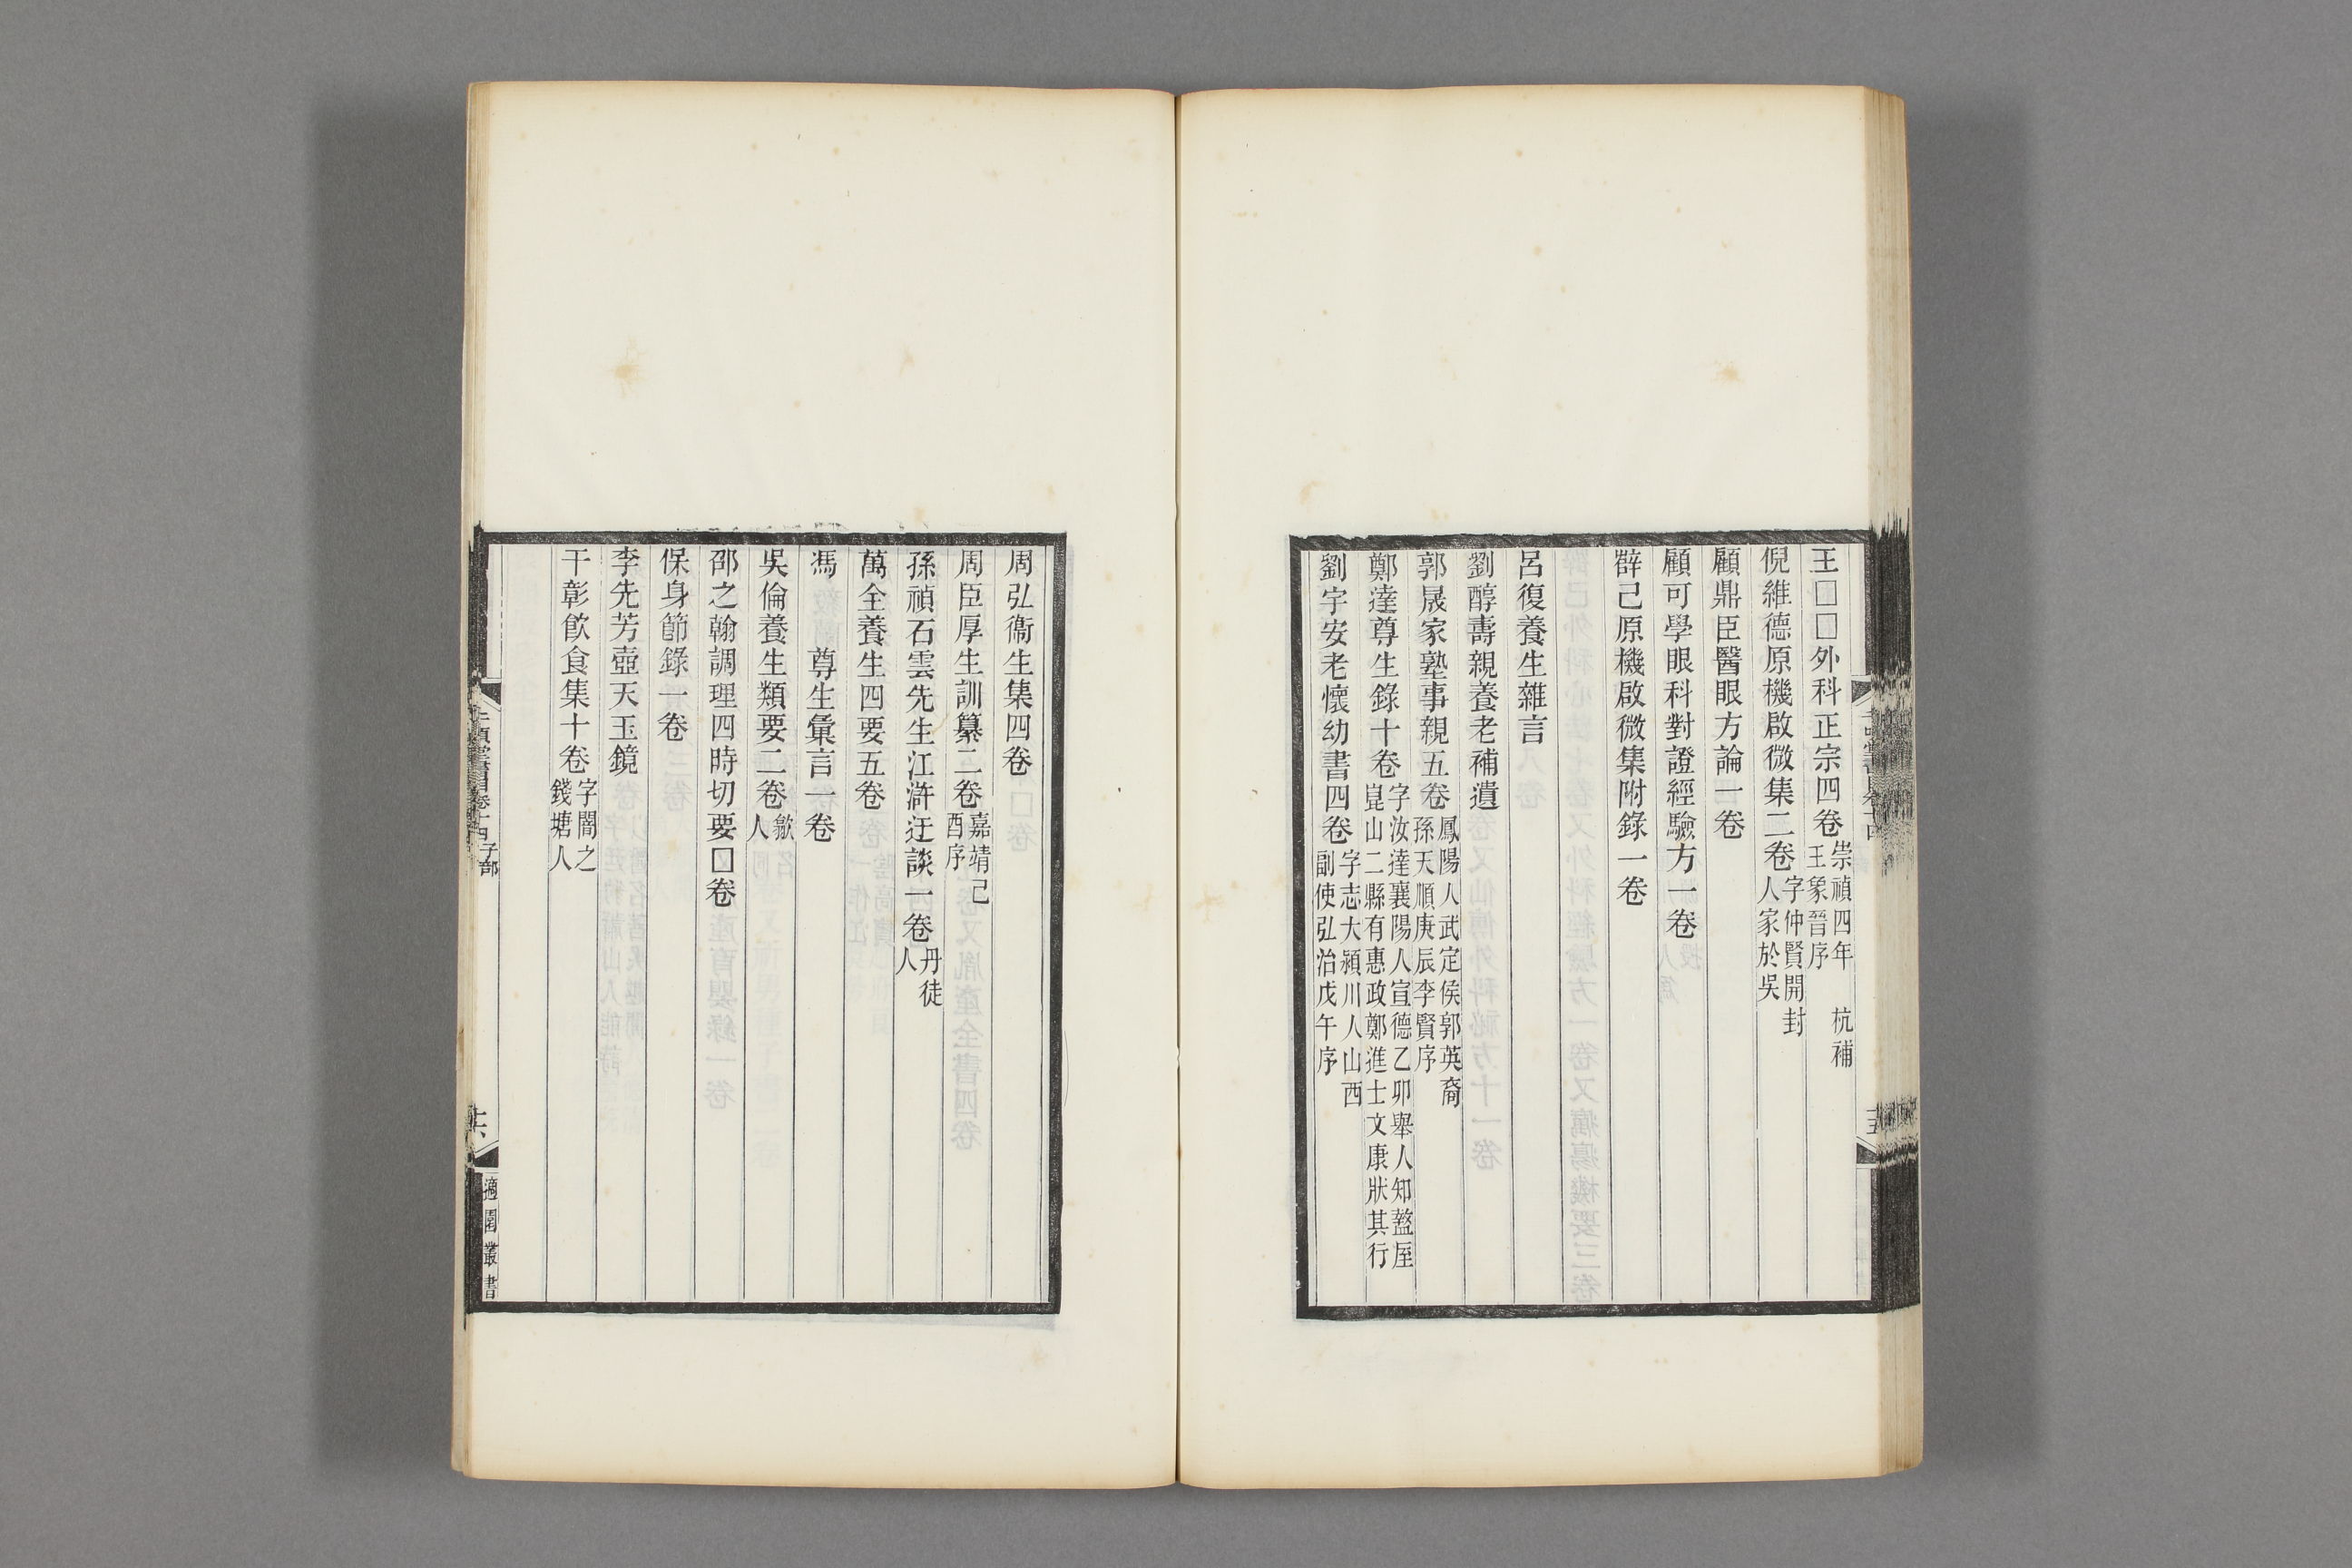 王□□外科正宗四卷崇禎四年　杭補王象晉序
倪維德原機啟微集二卷字仲賢開封人家於吳
顧鼎臣醫眼方論一卷
顧可學眼科對證經驗方一卷
薛己原機啟微集附錄一卷
呂復養生雜言
劉醇壽親養老補遺
郭晟家塾事親五卷鳳陽人武定侯郭英裔孫天順庚辰李賢序
鄭達遵生錄十卷字汝達襄陽人宣德乙卯舉人知盩厔崑山二縣有惠政鄭進士文康狀其行
劉宇安老懷幼書四卷字志大潁川人山西副使弘治戊午序
十五
周弘衞生集四卷
周臣厚生訓纂二卷嘉靖己酉序
孫禎石雲先生江滸迂談一卷丹徒人
萬全養生四要五卷
馮　　尊生彙言一卷
吳倫養生類要二卷歙人
邵之翰調理四時切要□卷
保身節錄一卷
李先芳壺天玉鏡
干彰飲食集十卷字闇之錢塘人
千頃堂書目卷十四　子部
十六
適園叢書